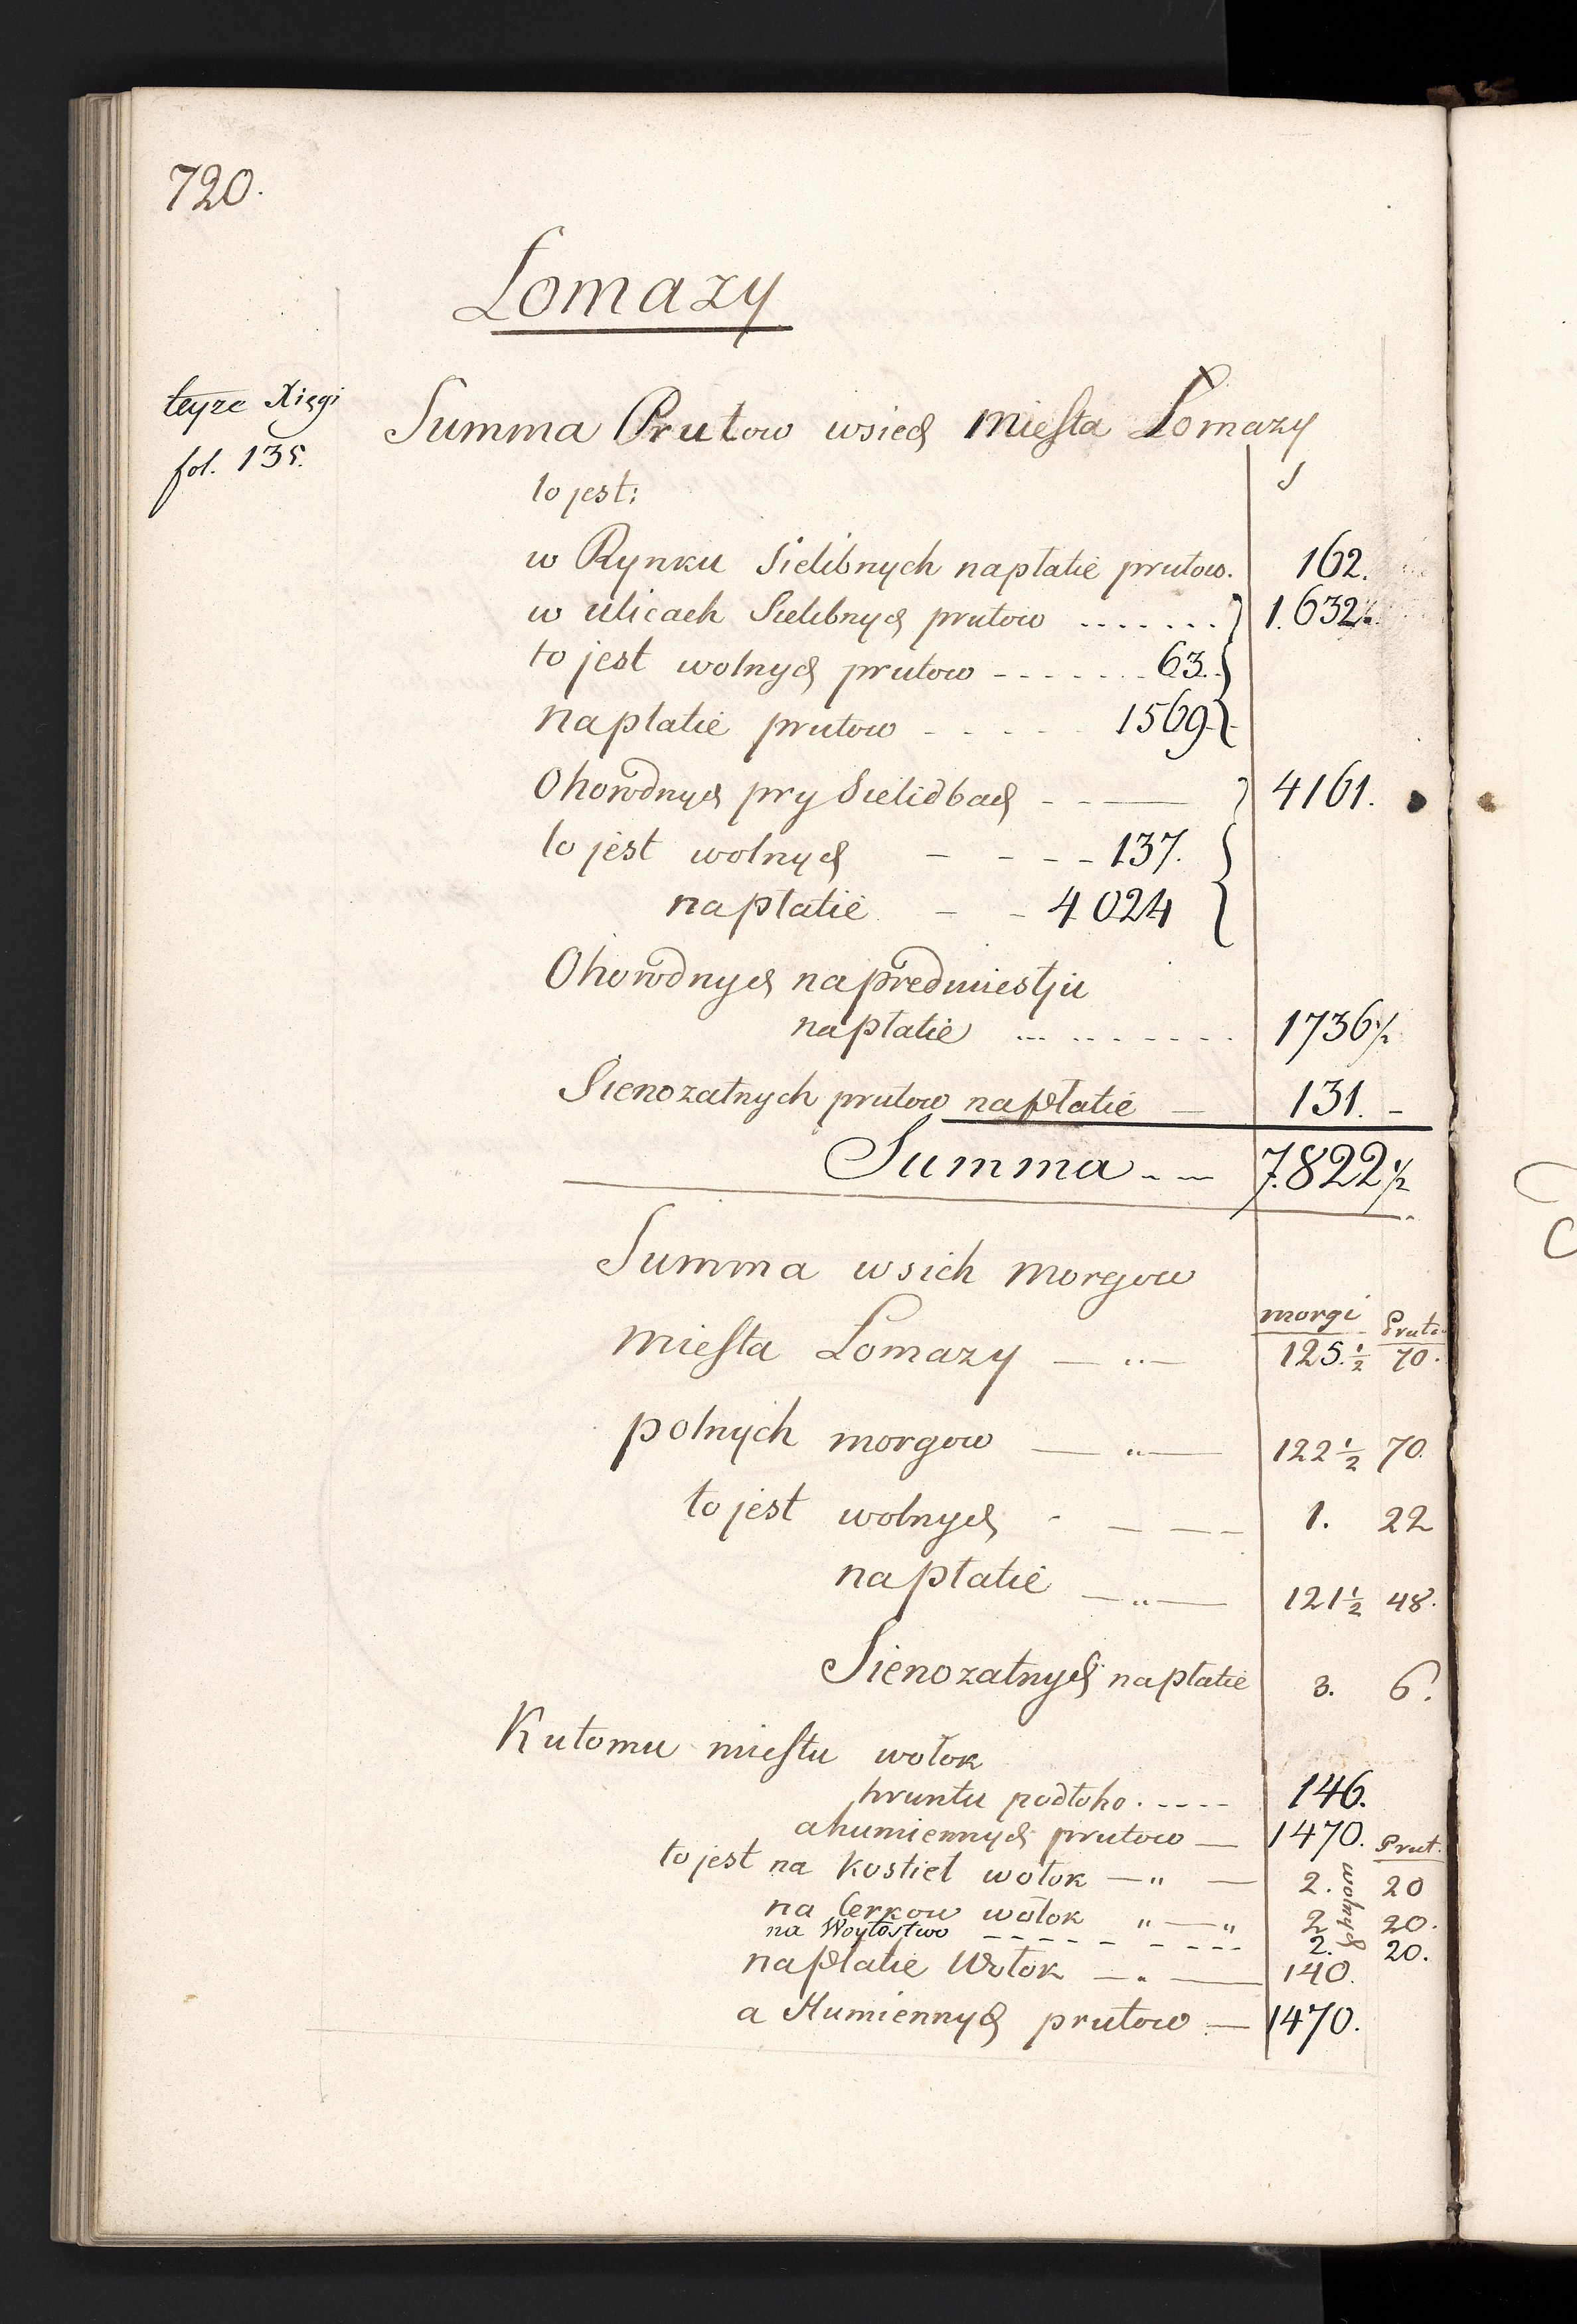 720.
Lomazy
teyze Xięgi
fol. 135.
Summa Prutow wsiech miesta Lomazy
to jest:
w Rynku Sielibnych napłatie prutow. 162.
w ulicach Sielibnych prutow ....... 1.632.
to jest wolnych prutow - - - - - - - 63.
napłatie prutow - - - - - 1569
Ohorodnych pry Sielidbach - - — 4161.
to jest wolnych - - - - 137.
napłatie - - 4024
Ohorodnych napredmiestju
napłatie ... ... - - - - 1736 1/2
Sienozatnych prutow napłatie — 131. -
Summa - - 7.822 1/2
Summa wsich morgow
morgi Pruto.
miesta Lomazy — " — 125. 1/2 70.
polnych morgow — " — 122 1/2 70.
to jest wolnych - — — - 1. 22
napłatie — " — 121 1/2 48.
Sienozatnych napłatie 3. 6.
Kutomu miestu wołok
hruntu podłoho. - - - - 146.
ahumiennych prutow — 1470. Prut.
to jest na kostieł wołok — " — 2. wolnych 20
na Cerkow wołok " — " 2 20.
na Woytostwo - - - - - - - - 2. 20.
napłatie Wołok — " — 140.
a Humiennych prutow — 1470.